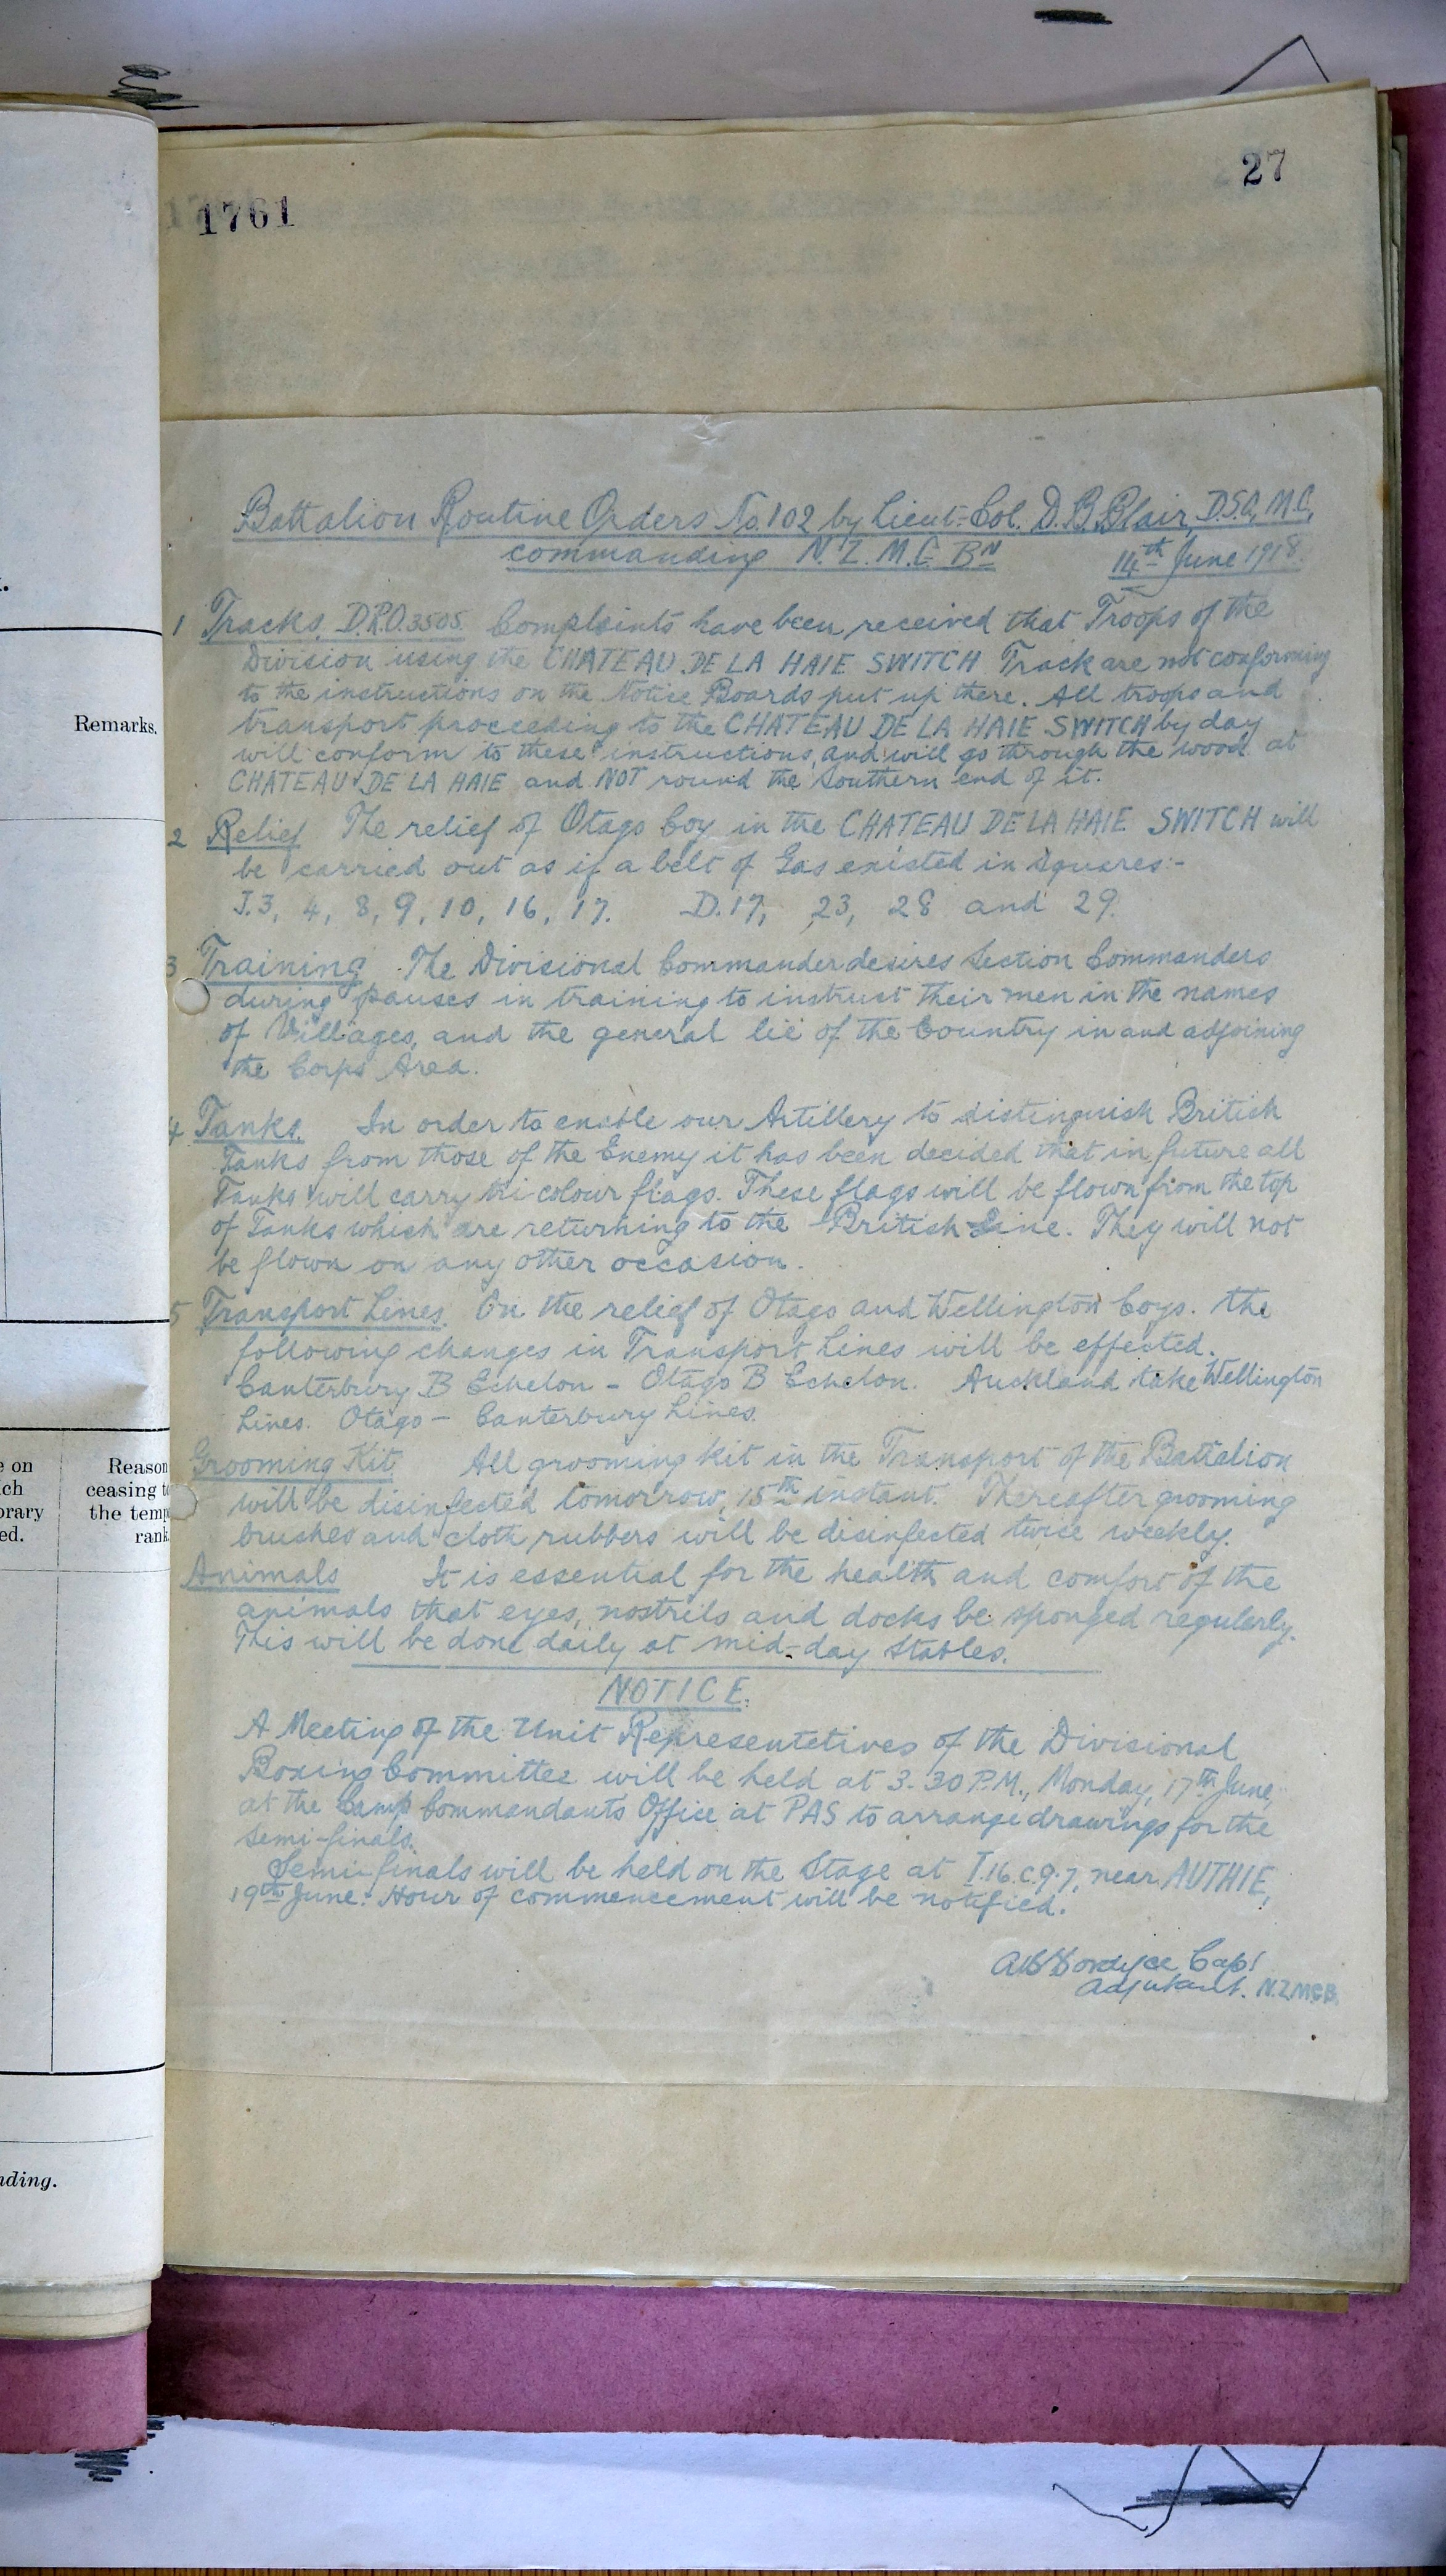 27
1761
Battalion Routine Orders No. 102 by Lieut-Col. D.B. Blair, D.S.O., M.C.,
commanding N.Z.M.G. Bn 14th June 1918.
1 Tracks. D.R.O. 3505. Complaints have been received that Troops of the
Division using the CHATEAU DE LA HAIE SWITCH Track are not conforming
to the instructions on the Notice Boards put up there. All troops and
transport proceeding to the CHATEAU DE LA HAIE SWITCH by day
will conform to these instructions, and will go through the wood at
CHATEAU DE LA HAIE and NOT round the Southern end of it.
2 Relief The relief of Otago Coy in the CHATEAU DE LA HAIE SWITCH will
be carried out as if a belt of Gas existed in squares:-
J.3, 4, 8, 9, 10, 16, 17. D.17, 23, 28 and 29.
3 Training The Divisional Commander desires Section Commanders
during pauses in training to instruct their men in the names
of Villages, and the general lie of the Country in and adjoining
the Corps Area.
4 Tanks. In order to enable our Artillery to distinguish British
Tanks from those of the Enemy it has been decided that in future all
Tanks will carry tri-colour flags. These flags will be flown from the top
of Tanks which are returning to the British Line. They will not
be flown on any other occasion.
5 Transport Lines. On the relief of Otago and Wellington Coys. the
following changes in Transport Lines will be effected.
Canterbury B Echelon - Otago B Echelon. Auckland take Wellington
Lines. Otago - Canterbury Lines.
Grooming Kit All grooming kit in the Transport of the Battalion
will be disinfected tomorrow, 15th instant. Thereafter grooming
brushes and cloth rubbers will be disinfected twice weekly.
Animals It is essential for the health and comfort of the
animals that eyes, nostrils and docks be sponged regularly.
This will be done daily at mid-day stables.
NOTICE.
A Meeting of the Unit Representetives of the Divisional
Boxing Committee will be held at 3.30 P.M., Monday, 17th June,
at the Camp Commandants Office at PAS to arrange drawings for the
semi-finals.
Semi-finals will be held on the Stage at I.16.c.9.7, near AUTHIE,
19th June. Hour of commencement will be notified.
Capt
Adjutant. N.Z.M.G.B.
Remarks.
e on
ch
orary
ed.
Reason
ceasing to
the temp
rank.
nding.